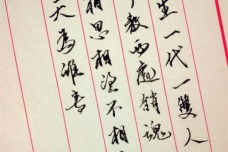 生一代一雙人
教兩處銷魂
相思相望不相
天為誰春